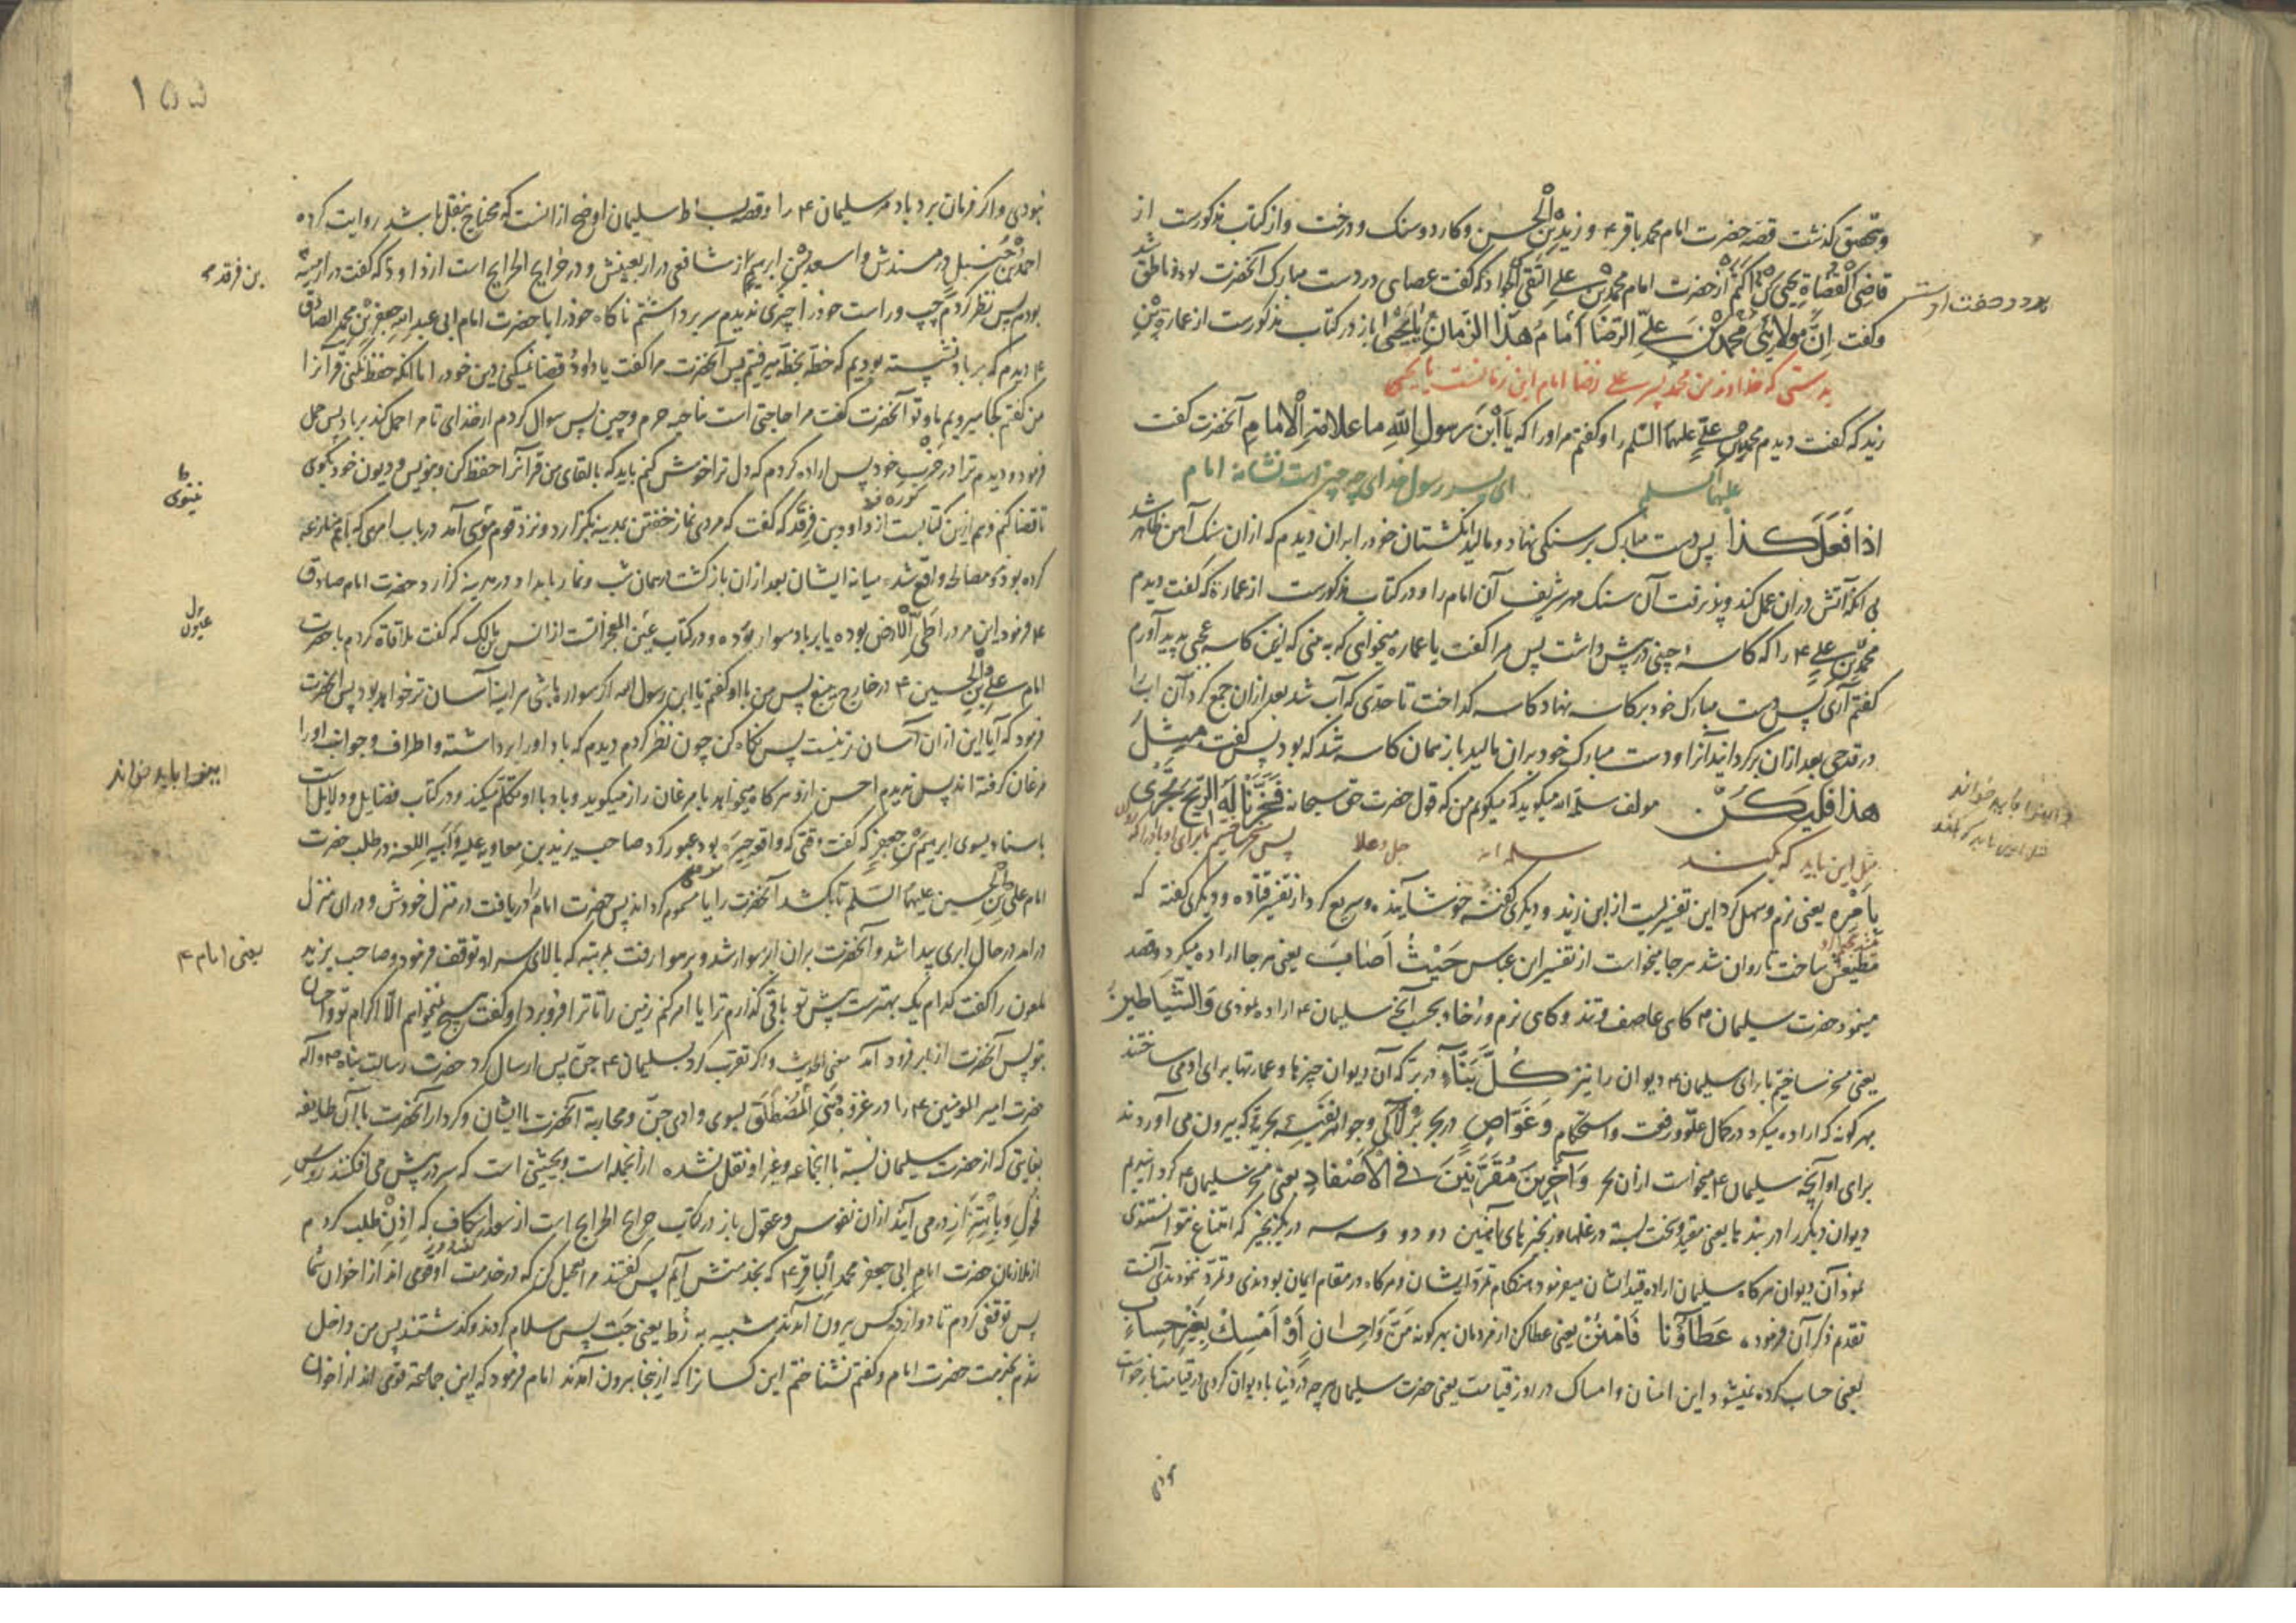 وتحقیق گذشت قصه حضرت امام محمد باقر ۴ و زید بْنِ الْحَسن و کارد و سنک و درخت و از کتاب مذکورست از
قاضِی الْقُضاةِ یحیی بْنِ اَکْثَم از حضرت امام محمد بْنِ علی التقی که گفت عصای در دست مبارک آنحضرت بود و ناطق شد
بود در دست او
وگفت اِنَّ مَولایَئی مُحَمَّدُ بْنُ عَلیِّ الرّضا اَمامُ هذا الزَّمانِ یا یَحْیی باز در کتاب مذکورست از عمارة بْنِ
بدرستی که خداوند من محمد پسر علی رضا امام این زمانست یا یحیی
زید که گفت دیدم محمد بْنِ علی علیهما السّلم را و گفتم مر او را که یَا ابْنَ رَسولِ اللهِ ما علامَةِ الْاِمامِ آنحضرت گفت
علیهما السلم
ای پسر رسول خدای چه چیز است نشانهٔ امام
اذا فَعَلَ کَذا پس دست مبارک بر سنگی نهاد و مالید انگشتان خود را بران دیدم که ازان سنک آهن ظاهر شد
بی آنکه آتش در آن عمل کند و پذیرفت آن سنک مهر شریف آن امام را و در کتاب مذکورست از عمارة که گفت دیدم
محمد بْنِ علی ۴ را که کاسهٔ چینی در پیش داشت پس مرا گفت یا عماره میخواهی که به بینی که ازین کاسه عجبی پدید آورم
گفتم آری پس دست مبارک خود بر کاسه نهاد کاسه گداخت تا حدی که آب شد بعد ازان جمع کرد آن آب را
در قدحی بعد ازان برگردانید آنرا و دست مبارک خود بران مالید باز همان کاسه شد که بود پس گفت مِثلَ
هذا فَلْیَکُنْ مولف سلمه الله میگوید که میگویم من که قول حضرت حق سبحانه فَسَخَّرْنا لَهُ الرّیحَ تَجْرِی
مثل این باید که بکند
سلمه الله
جل و علا
پس مسخر ساختیم ما برای او باد را که روان
بِاَمْرِه یعنی نرم و سهل کرد این تفسیریست از ابن زید و دیگری گفته خوش آینده و سریع کرد از تفسیر قتاده و دیگری گفته که
مطیعش ساخت تا روان شد هر جا میخواست از تفسیر ابن عباس حَیْثُ اَصابَ یعنی هر جا اراده میکرد و قصد
مینمود حضرت سلیمان ۴ گاهی عاصف و تند و گاهی نرم و رخاء بحسب آنچه سلیمان ۴ اراده نمودی وَالشَّیاطین
یعنی مسخر ساختیم ما برای سلیمان ۴ دیوان را نیز کُلَّ بَنّاءٍ در بر که آن دیوان چیزها و عمارتها برای او می ساختند
بهر گونه که اراده میکرد در کمال علوّ و رفعت و استحکام وَغَوّاصٍ در بحر بَر لآلی و جواهر نفیسهٔ بحریه که بیرون می آوردند
برای او آنچه سلیمان ۴ میخواست ازان بحر وَآخَرینَ مُقَرَّنینَ فِی الْاَصْفادِ یعنی مسخر سلیمان ۴ گردانیدیم
دیوان دیگر را در بندها یعنی مقید و سخت بسته در غلها و زنجیرهای آهنین دو دو و سه سه در یک زنجیر که امتناع نتوانستندی
نمود آن دیوان هرگاه سلیمان اراده قید ایشان میفرمود هنگام تمرّد ایشان و هرگاه در مقام ایمان بودندی و تمرّد ننمودندی آنست
تقدم ذکر آن فرموده عَطاؤُنا فَامْنُنْ یعنی عطا کن از مردمان بهر گونه مَنّ و احسان اَوْ اَمْسِكْ بِغَیْرِ حِسابٍ
یعنی حساب کرده نمیشود این امتنان و امساک در روز قیامت یعنی حضرت سلیمان هر چه در دنیا با دیوان کردی در قیامت بازخواست
۱۵۵
نبودی و اگر فرمان برد باد مر سلیمان ۴ را و قصه بساط سلیمان اوضح ازانست که محتاج بنقل باشد روایت کرده
احمد بْنِ حَنبل در مسندش و اسعد بْنِ ابرهیم از شافعی در اربعینش و در خرایج الجرایح است از داود که گفت در مدینه
بن فرقد
بودم پس نظر کردم چپ و راست خود را چیزی ندیدم سر برداشتم ناگاه خود را با حضرت امام ابی عبد الله جعفر بْنِ محمد الصادق
۴ دیدم که بر باد نشسته بودیم که خطه بخطه میرفتیم پس آنحضرت مرا گفت یا داود قضا میکنی دین خود را اما آنکه حفظ نکنی قرآن را
من گفتم کجا میرویم ما و تو آنحضرت گفت مرا حاجتی است بناحیه حرم و چین پس سوال کردم از خدای تا مرا حمل کند بر باد پس حمل
فرمود و دیدم ترا در حزب خود پس اراده کردم که دل ترا خوش کنم باید که بالقای من قرآنرا حفظ کن و بنویس و دیون خود بگوی
تا قضا کنم و هم ازین کتابست از داود بن فرقد که گفت که مردی نماز خفتن بمدینه بگزارد و نزد قوم موسی آمد در باب امری که باهم منازعه
کرده بودند و مصالحه واقع شد میانه ایشان بعد ازان بازگشت در همان شب و نماز بامداد در مدینه گزارد حضرت امام صادق
۴ فرمود این مرد را طَیِّ الْاَرض بوده یا بر باد سوار بوده و در کتاب عیون المعجزاتست از انس بن مالک که گفت ملاقاة کردم با حضرت
عیون
امام علی بْنِ الْحُسین ۴ در خارج ینبع پس من با او گفتم یا ابن رسول الله اگر سوار باشی هر آینه آسان تر خواهد بود پس آنحضرت
فرمود که آیا این ازان آسان تر نیست پس نگاه کن چون نظر کردم دیدم که باد او را برداشته و اطراف و جوانب او را
مرغان گرفته اند پس ندیدم احسن ازو هرگاه میخواهد با مرغان راز میگوید و باد با او تکلّم میکند و در کتاب فضایل و دلایل است
باسناد بسوی ابرهیم بْنِ جعفر که گفت وقتی که واقعه حَرّه بود عبور کرد صاحب یزید بن معاویه علیه و اَبیهِ اللعنه در طلب حضرت
امام علی بْنِ الْحُسین علیهما السّلم تا بکشد آنحضرت را یا مسموم گرداند پس حضرت امام را دریافت در منزل خودش و در ان منزل
در آمد در حال ابری پیدا شد و آنحضرت بران ابر سوار شد و بر هوا رفت بمرتبه که بالای سر او توقف فرمود و صاحب یزید
یعنی امام ۴
ملعون را گفت کدام یک بهترست پیش تو باقی گذارم ترا یا امر کنم زمین را تا ترا فرو برد او گفت هیچ نمیخواهم الّا اکرام تو و احسان
تو پس آنحضرت از ابر فرود آمد معنی الحدیث و اگر تقرب کرد بسلیمان ۴ جنّ پس ارسال کرد حضرت رسالت پناه ص و آله
حضرت امیر المومنین ۴ را در غزوه بَنی الْمُصْطَلَق بسوی وادی جنّ و محاربة آنحضرت با ایشان و کردار آنحضرت با آن طایفه
بغایتی که از حضرت سلیمان نسبة با آنجماعه و غیر او نقل نشده ازانجمله است و بحیثیتی است که سر در پیش می افکنند رؤس
از ملازمان حضرت امام ابی جعفر محمد الباقر ۴ که بخدمتش آیم پس گفتند مرا تعجیل مکن که در خدمت او قومی اند از اخوان شما
پس توقفی کردم تا دوازده کس بیرون آمدند شبیه به زُط یعنی جَت پس سلام کردند و گذشتند پس من داخل
شدم بخدمت حضرت امام و گفتم نشناختم این کسانرا که از اینجا بیرون آمدند امام فرمود که این جماعة قومی اند از اخوان